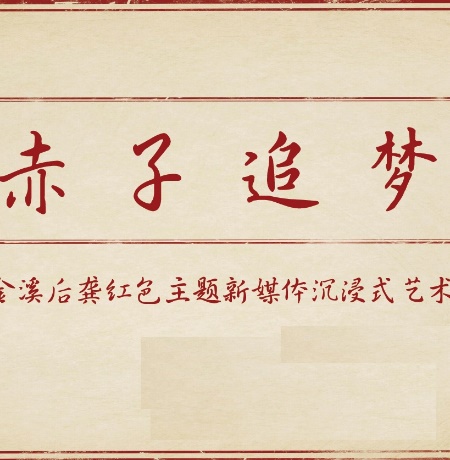 赤子追梦
金溪后龚红色主题新媒体沉浸式艺术